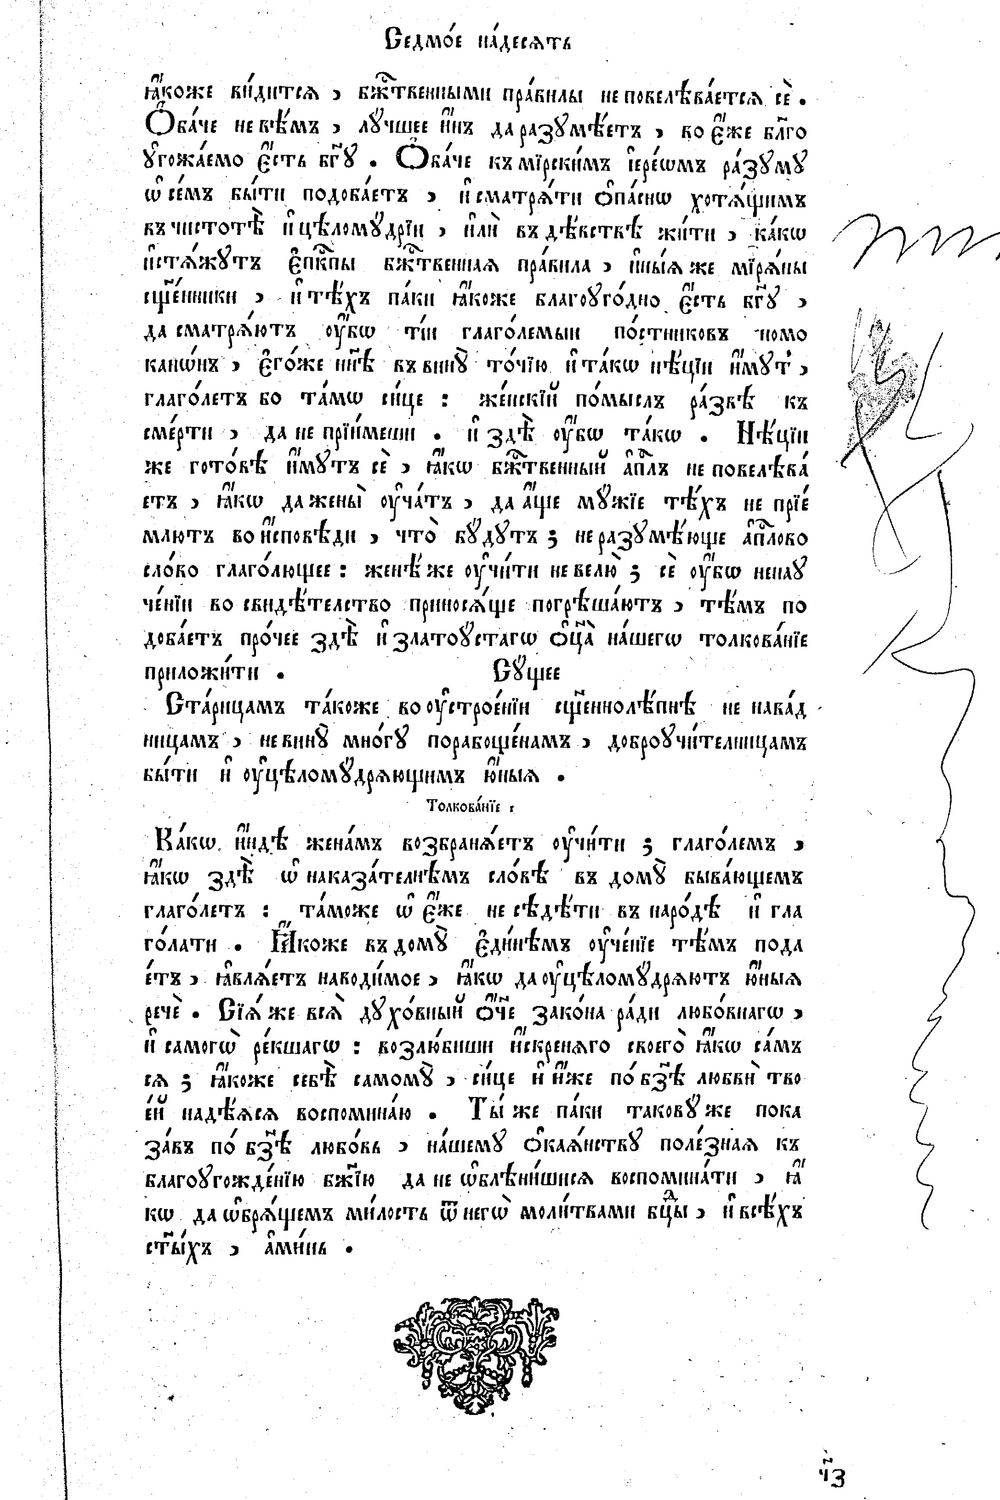 Седмо́е на́десѧть
ꙗ҆́коже ви́дитсѧ , бж҃твенными пра́вилы не повелѣва́етсѧ сѐ .
Ѻ҆ба́че не вѣ́мъ , лꙋ́чшее и҆́нъ да разꙋмѣ́етъ , во є҆́же бл҃го
ᲂу҆гожа́емо є҆́сть бг҃ꙋ . Ѻ҆ба́че къ мїрски́мъ і҆ере́ѡмъ ра́зꙋмꙋ
ѡ҆ се́мъ бы́ти подоба́етъ , и҆ сматрѧ́ти ѻ҆па́снѡ хотѧ́щимъ
въ чистотѣ̀ и҆ цѣломꙋ́дрїи , и҆лѝ въ дѣ́вствѣ жи́ти , ка́кѡ
и҆стѧ́жꙋтъ є҆пⷭ҇кпы бж҃твеннаѧ пра́вила , и҆ны́ѧ же мїрѧ́ны
сщ҃е́нники , и҆ тѣ́хъ па́ки ꙗ҆́коже благоꙋго́дно є҆́сть бг҃ꙋ ,
да сматрѧ́ютъ ᲂу҆́бѡ ті́и глаго́лемыи по́стниковъ номо
канѡ́нъ , є҆го́же нн҃ѣ въ винꙋ̀ то́чїю и҆ та́кѡ нѣ́цїи и҆́мꙋт̾ ,
глаго́летъ бо та́мѡ си́це : же́нскїй по́мыслъ ра́звѣ къ
сме́рти , да не прїи́меши . и҆ здѣ̀ ᲂу҆́бѡ та́кѡ . Нѣ́цїи
же гото́вѣ и҆́мꙋтъ сѐ , ꙗ҆́кѡ бж҃твенный а҆пⷭ҇лъ не повелѣва́
етъ , ꙗ҆́кѡ да жены̀ ᲂу҆ча́тъ , да а҆́ще мꙋ́жїе тѣ́хъ не прїе́
млютъ во и҆́сповѣди , что̀ бꙋ́дꙋтъ ; не разꙋмѣ́юще а҆пⷭ҇лово
сло́во глаго́лющее : женѣ́ же ᲂу҆чи́ти не велю̀ ; сѐ ᲂу҆́бѡ ненаꙋ
че́нїи во свидѣ́телство приносѧ́ще погрѣша́ютъ , тѣ́мъ по
доба́етъ про́чее здѣ̀ и҆ златоꙋ́стагѡ ѻ҆ц҃а̀ на́шегѡ толкова́нїе
приложи́ти . Сꙋ́щее
Ста́рицамъ та́коже во ᲂу҆строе́нїи сщ҃еннолѣ́пнѣ не нава́д
ницамъ , не винꙋ̀ мно́гꙋ порабоще́намъ , доброꙋчи́телницамъ
бы́ти и҆ ᲂу҆цѣломꙋ́дрѧющимъ ю҆́ныѧ .
Толкова́нїе :
Ка́кѡ и҆́ндѣ жена́мъ возбранѧ́етъ ᲂу҆чи́ти ; глаго́лемъ ,
ꙗ҆́кѡ здѣ̀ ѡ҆ наказа́телнѣмъ сло́вѣ въ домꙋ̀ быва́ющемъ
глаго́летъ : та́може ѡ҆ є҆́же не сѣдѣ́ти въ наро́дѣ и҆ гла
го́лати . Ꙗ҆́коже въ домꙋ̀ є҆ди́нѣмъ ᲂу҆че́нїе тѣ́мъ пода
е́тъ , ꙗ҆влѧ́етъ наводи́мое , ꙗ҆́кѡ да ᲂу҆цѣломꙋ́дрѧютъ ю҆́ныѧ
речѐ . Сїѧ́ же всѧ̀ дꙋхо́вный ѻ҆́ч҃е зако́на ра́ди любо́внагѡ ,
и҆ самогѡ̀ ре́кшагѡ : возлю́биши и҆́скренѧго своего̀ ꙗ҆́кѡ са́мъ
сѧ ; ꙗ҆́коже себѣ̀ самомꙋ̀ , си́це и҆ и҆́же по́ бз҃ѣ любвѝ тво
е́й надѣ́ѧсѧ воспомина́ю . Ты́ же па́ки таковꙋ́ же пока
за́въ по́ бз҃ѣ любо́вь , на́шемꙋ ѻ҆каѧ́нствꙋ поле́знаѧ къ
благоꙋгожде́нїю бж҃їю да не ѡ҆блѣни́шисѧ воспомина́ти , ꙗ҆́
кѡ да ѡ҆брѧ́щемъ ми́лость ѿ негѡ̀ моли́твами бцⷣы , и҆ всѣ́хъ
ст҃ы́хъ , а҆ми́нь .
ч҃з